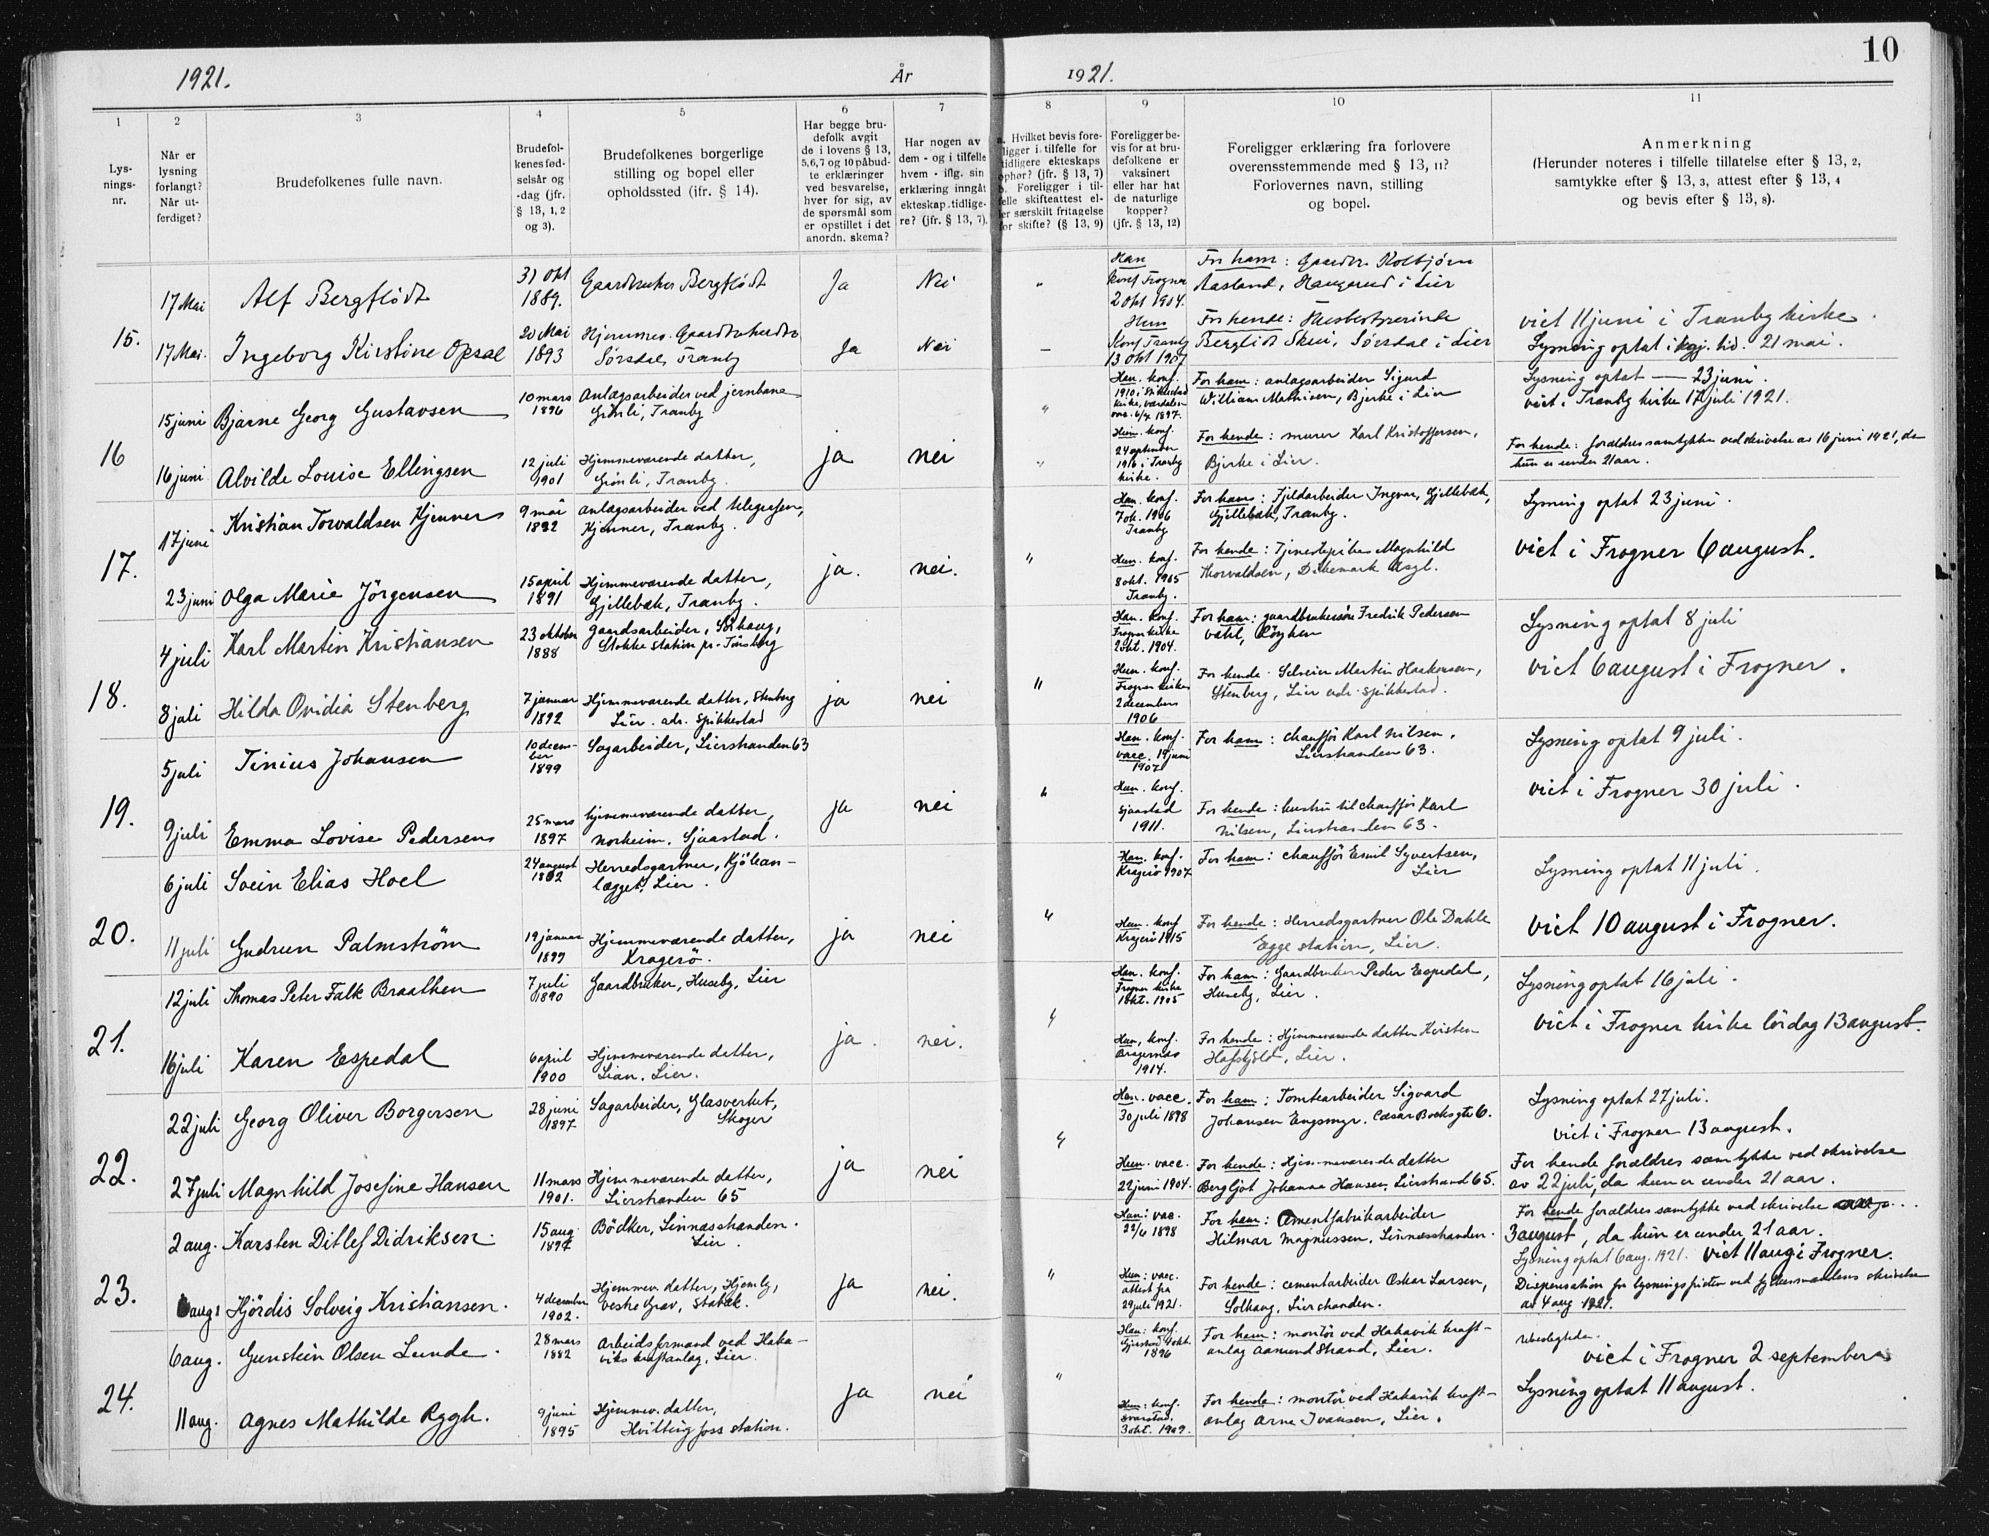 10
1921.
År
1921.
1
2
3
4
5
6
7
8
9
10
11
Lys-
nings-
nr.
Når er
lysning
forlangt?
Når ut-
ferdiget?
Brudefolkenes fulle navn.
Brudefol-
kenes fød-
selsår og
-dag (jfr.
§ 13, 1, 2
og 3).
Brudefolkenes borgerlige
stilling og bopel eller
opholdssted (ifr. § 14).
Har begge bru-
defolk avgit
de i lovens § 13,
5,6,7 og 10 påbud-
te erklæringer
ved besvarelse,
hver for sig, av
de spørsmål som
er opstillet i det
anordn. skema?
Har nogen av
dem - og i tilfelle
hvem - iflg. sin
erklæring inngåt
ekteskap tidlige-
re? (jfr. § 13, 7).
a. Hvilket bevis fore-
ligger i tilfelle for
tidligere ekteskaps
ophør? (jfr. § 13, 7)
b. Foreligger i til-
felle skifteattest el-
er særskilt fritagelse
for skifte? (§ 13, 9)
Foreligger be-
vis for at bru-
defolkene er
vaksinert
eller har hat
de naturlige
kopper?
(jfr. § 13, 12)
Foreligger erklæring fra forlovere
overensstemmende med § 13, 11?
Forlovernes navn, stilling
og bopel.
Anmerkning
(Herunder noteres i tilfelle tillatelse efter § 13, 2,
samtykke efter § 13, 3, attest efter § 13, 4
og bevis efter § 13, 8).
15.
17 Mai
Alf Bergflödt
31 okt
1889.
Gaardbruker Bergflödt
Ja
Nei
Han
konf Frogner
2 okt 1904.
For ham: Gaardbr. Kolbjörn
Aasland, Haugerud i Lier
17 Mai.
Ingeborg Kirstine Opsal
20 Mai
1893
Sörsdal, Tranby
Ja
Nei
Hun
Konf Tranby
13 okt 1907
For hende: Husbestyrerinde
Bergliot Skui, Sörsdal i Lier
viet 11 juni i Tranby kirke.
Lysning optat i kgj. tid. 21 mai.
16
15 juni
Bjarne Georg Gustavsen
10 mars
1896
Anlægsarbeider ved jernbane
Grönli, Tranby.
Han. konf.
For ham: anlægsarbeider Sigurd
William Mathisen, Bjerke i Lier
Lysning optat — 23 juni.
viet i Tranby kirke 17 juli 1921.
16 juni
Alvilde Louise Ellingsen
12 juli
1901
Hjemmeværende datter,
Grönli, Tranby.
ja
nei
Hun. konf.
24 september
1916 i Tranby
kirke.
For hende: murer Karl Kristoffersen,
Bjerke i Lier.
For hende: forældres samtykke ved skrivelse av 16 juni 1921, da
hun er under 21 aar.
17.
17 juni
Kristian Torvaldsen Kjenner
9 mai
1892
anlægsarbeider ved telegrafen,
Kjenner, Tranby.
Han. konf.
7 ok. 1906
Tranby
For ham: Fjeldarbeider Ingvar Gjellebæk,
Gjellebæk, Tranby.
Lysning optat 23 juni.
viet i Frogner 6 august.
23 juni
Olga Marie Jörgensen
15 april
1891
Hjemmeværende datter,
Gjellebæk, Tranby.
ja.
nei.
Hun. konf.
8 okt. 1905
Tranby.
For hende: Tjenestepike Magnhild
Thorvaldsen, Dikemark Asyl.
18.
4 juli
Karl Martin Kristiansen
23 oktober
1888
gaardsarbeider, Sörhaug,
Stokke station pr. Tönsberg
Han. konf.
Frogner kirke
2 okt. 1904.
For ham: gaardbrukersön Fredrik Pedersen
Vahl, Röyken
Lysning optat 8 juli
viet 6 august i Frogner.
8 juli
Hilda Ovidia Stenberg
7 januar
1892
Hjemmeværende datter, Stenberg
Lier. adr. Spikkestad
ja
nei
Hun. konf.
Frogner kirke
2 december
1906
For hende. Selveier Martin Haakonsen,
Stenberg, Lier adr. Spikkestad.
19.
5 juli
Tinius Johansen
10 decem-
ber
1899
Sagarbeider, Lierstranden 63
Han. konf.
vacc. 19 juni
1907
For ham: chaufför Karl Nilsen,
Lierstranden 63.
Lysning optat 9 juli.
viet i Frogner 30 juli.
9 juli
Emma Lovise Pedersen
25 mars
1897
hjemmeværende datter,
Norheim, Sjaastad.
ja
nei
Hun. konf.
Sjaastad
1911.
For hende: hustru til chaufför Karl
Nilsen, Lierstranden 63.
20.
6 juli
Svein Elias Hoel
24 august
1892
Herredsgartner, Kjölean-
lægget, Lier.
Han. konf.
Kragerö 1907
For ham: chaufför Emil Syvertsen,
Lier
Lysning optat 11 juli.
viet 10 august i Frogner.
11 juli
Gudrun Palmström
19 januar
1899
Hjemmeværende datter,
Kragerö.
ja
nei
Hun. konf
Kragerö 1915
For hende: Herredsgartner Ole Dahle
Egge station, Lier.
21.
12 juli
Thomas Peter Falk Braathen
7 juli
1890
Gaardbruker, Huseby, Lier
Han. konf.
Frogner kirke
1 okt. 1905
For ham: Gaardbruker Peder Espedal,
Huseby, Lier.
Lysning optat 16 juli.
viet i Frogner kirke lördag 13 august.
16 juli
Karen Espedal
6 april
1900
Hjemmeværende datter,
Lian. Lier.
ja.
nei.
Hun, konf.
Bragernæs
1914.
For hende: Hjemmeværende datter Kristen
Hafskjold, Lier.
22.
22 juli
Georg Oliver Borgersen
28 juni
1897
Sagarbeider, Glasverket,
Skoger
Han. vacc.
30 juli 1898
For ham: Tomtearbeider Sigvard
Johansen Engsmyr. Cæsar Boeks gt. 6.
Lysning optat 27 juli.
viet i Frogner 13 august.
27 juli
Magnhild Josefine Hansen
11 mars
1901.
Hjemmeværende datter,
Lierstranden 65
ja
nei
Hun. vacc.
22 juni 1904.
For hende: Hjemmeværende datter
Bergljot Johanna Hansen, Lierstrand 65.
For hende forældres samtykke ved skrivelse
av 22 juli, da hun er under 21 aar.
23.
2 aug.
Karsten Ditlef Didriksen.
15 aug
1897
Bödker, Linnæsstranden.
Lier.
Han: vac.
22/6 1898
For ham: Cementfabrikarbeider
Hilmar Magnussen, Linnæsstranden.
For hende forældres samtykke ved skrivelse
3 august, da hun er under 21 aar.
Lysning optat 6 aug. 1921. viet 11 aug i Frogner.
6 aug.
Hjördis Solveig Kristiansen.
4 december
1902.
Hjemmev. datter, Hjemly,
Vestre Grav, Stabæk.
ja
nei.
Hun: vacc.
attest fra
29 juli 1921.
For hende: cementarbeider Oskar Larsen,
Solhaug, Lierstranden.
Dispensation for lysningsfristen ved fylkesmandens skrivelse
av 4 aug 1921.
24.
6 aug.
Gunstein Olsen Lunde.
28 mars
1882
Arbeidsformand ved Haka-
viks kraftanlæg, Lier.
Han: konf.
1896
For ham: montör ved Hakavik kraft-
anlæg Aamund Strand, Lier.
viet i Frogner 2 september
Lysning optat 11 august.
11 aug.
Agnes Mathilde Rygh.
9 juni
1895
Hjemmev. datter,
Hvittingfoss station.
ja
nei
Hun: konf.
Svarstad.
3 okt. 1909.
For hende: montör ved Hakavik kraft-
anlæg Arne Ivansen, Lier.